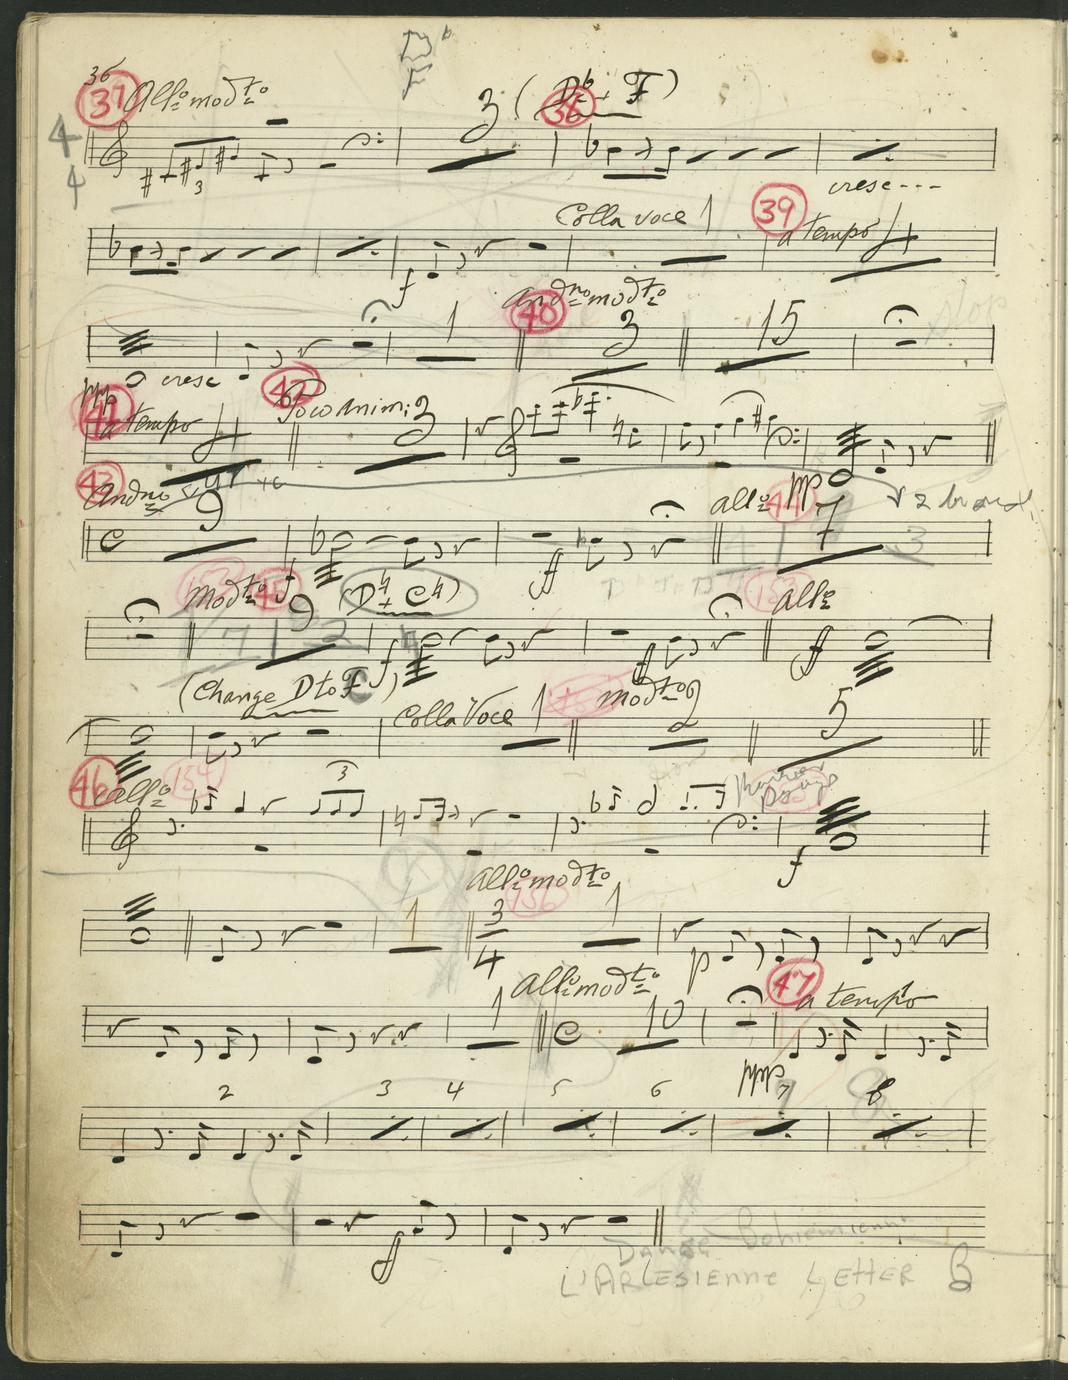 36
37 Allo modto
D b
F
3 (Db + F)
38
4
4
3
cresc---
Colla voce 1
39
a tempo 4
f
Andno modto
40
1 3 15
pp cresc
41 a tempo 4
42 Poco anim: 3
pp
43 Andno
9
C
ff
allo 44 7
v 2 bars
3
153 modto 45 9 (D♮ + C♮)
153 allo
f ff f
(Change D to F)
Colla Voce 1
modto 2
5
46 allo 154
3
f
allo modto
156
1
3
4
1
p
allo modto
1 C 10
47 a tempo
ppp
2 3 4 5 6 7 8
f
Danse Bohemienne
L'ARLESIENNE LETTER B